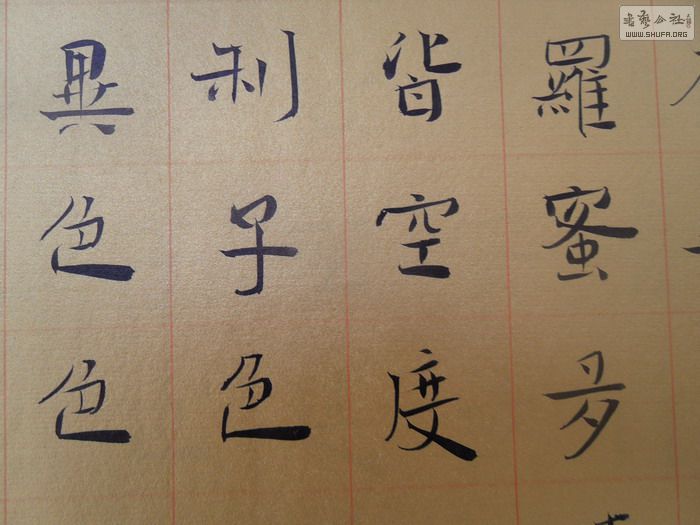 羅蜜多
皆空度
利子色
異色色
書藝公社
WWW.SHUFA.ORG